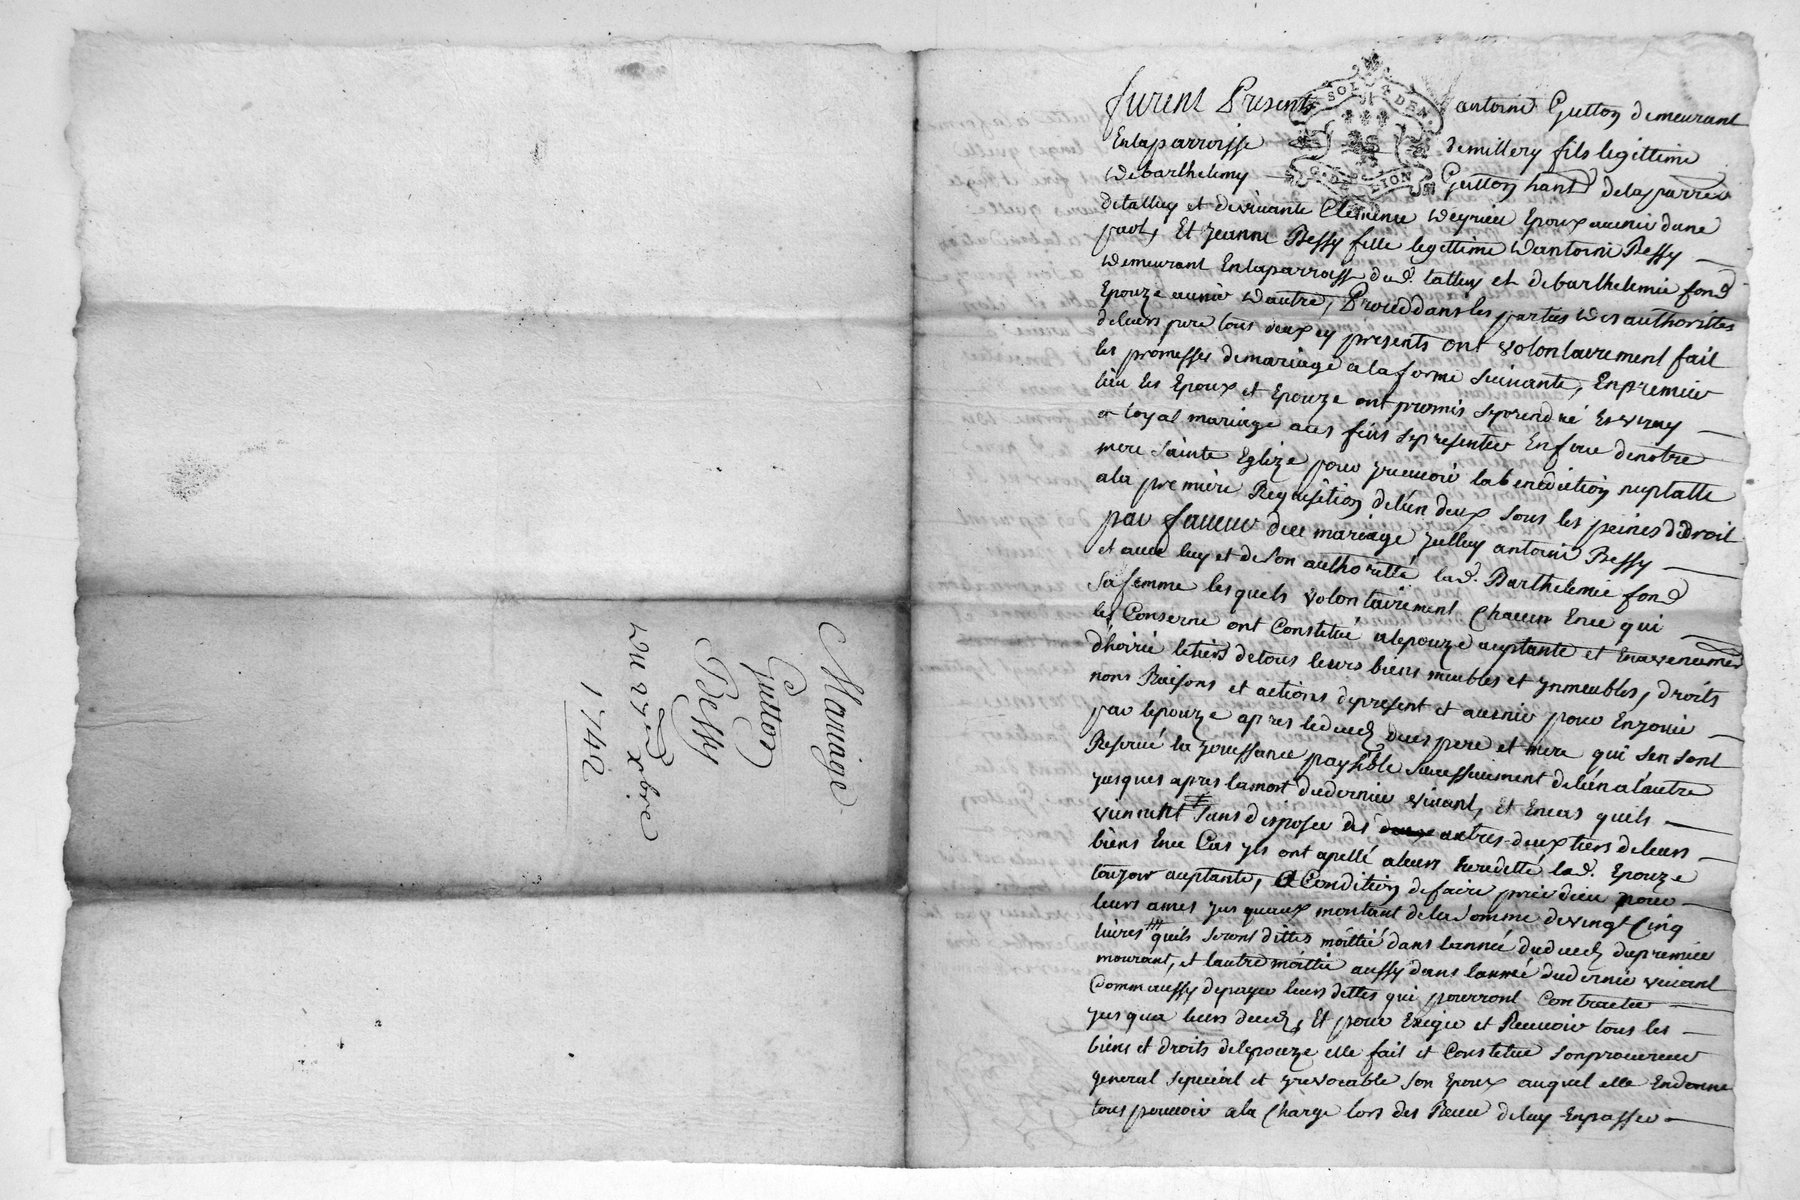 Mariage
Gutton
Bessy
Du 27e xbre
1742
SOL 4 DEN
G. DE LION
furent Presents antoine Gutton demeurant
En la parroisse de millery fils legittime
de barthelemy Gutton hant de la parre
de talluy et de vivante Clemence Epoux avenir dune
part, Et jeanne Bessy fille legittime d'antoine Bessy
demeurant En la parroisse dud. talluy et de barthelemie fond
Epouze avenir dautre, Proceddans les parties des authorittes
de leurs pere tous deux ey presents ont volontairement fait
les promesses de mariage a la forme suivante, En premier
lieu les Epoux et Epouze ont promis se prendre En vray
et loyal mariage a ces fins se presenter En face de notre
mere Sainte Eglize pour y recevoir la benediction nuptalle
a la premiere Requisition de l'un deux sous les peines de droit
par faveur du mariage antoine Bessy
et avec luy et de son authoritté lad. Barthelemie fond
sa femme lesquels volontairement Chacun En ce qui
les Conserne ont Constitué a lepouze auptante et En avenem
d'hoirie le tiers de tous leurs biens meubles et ynmeubles, droits
noms Raisons et actions de present et avenir pour En jouir
par lepouze apres le decez de ces pere et mere qui sen sont
Reservé la jouissance paysible successivement de lun a lautre
jusques apres la mort du dernier vivant, Et En cas quils
vinnent sans disposer des autres deux tiers de leurs
biens En ce Cas yls ont apellé a leurs heredetté lad. Epouze
toujour auptante, a Condition de faire prier dieu pour
leurs ames jus quaux montant de la somme de vingt Cinq
livres quils seront dittes moittié dans lannée du decez du premier
mourant, et lautre moittie aussy dans lannée du dernier vivant
Comm aussy de payer leurs dettes qui pourront Contracter
jus qua leurs decez, Et pour Exiger et Recevoir tous les
biens et droits de lepouze elle fait et Constitue son procureur
general special et yrevocable son Epoux auquel elle En donne
tous pouvoir a la Charge lors des Receu de luy En passer